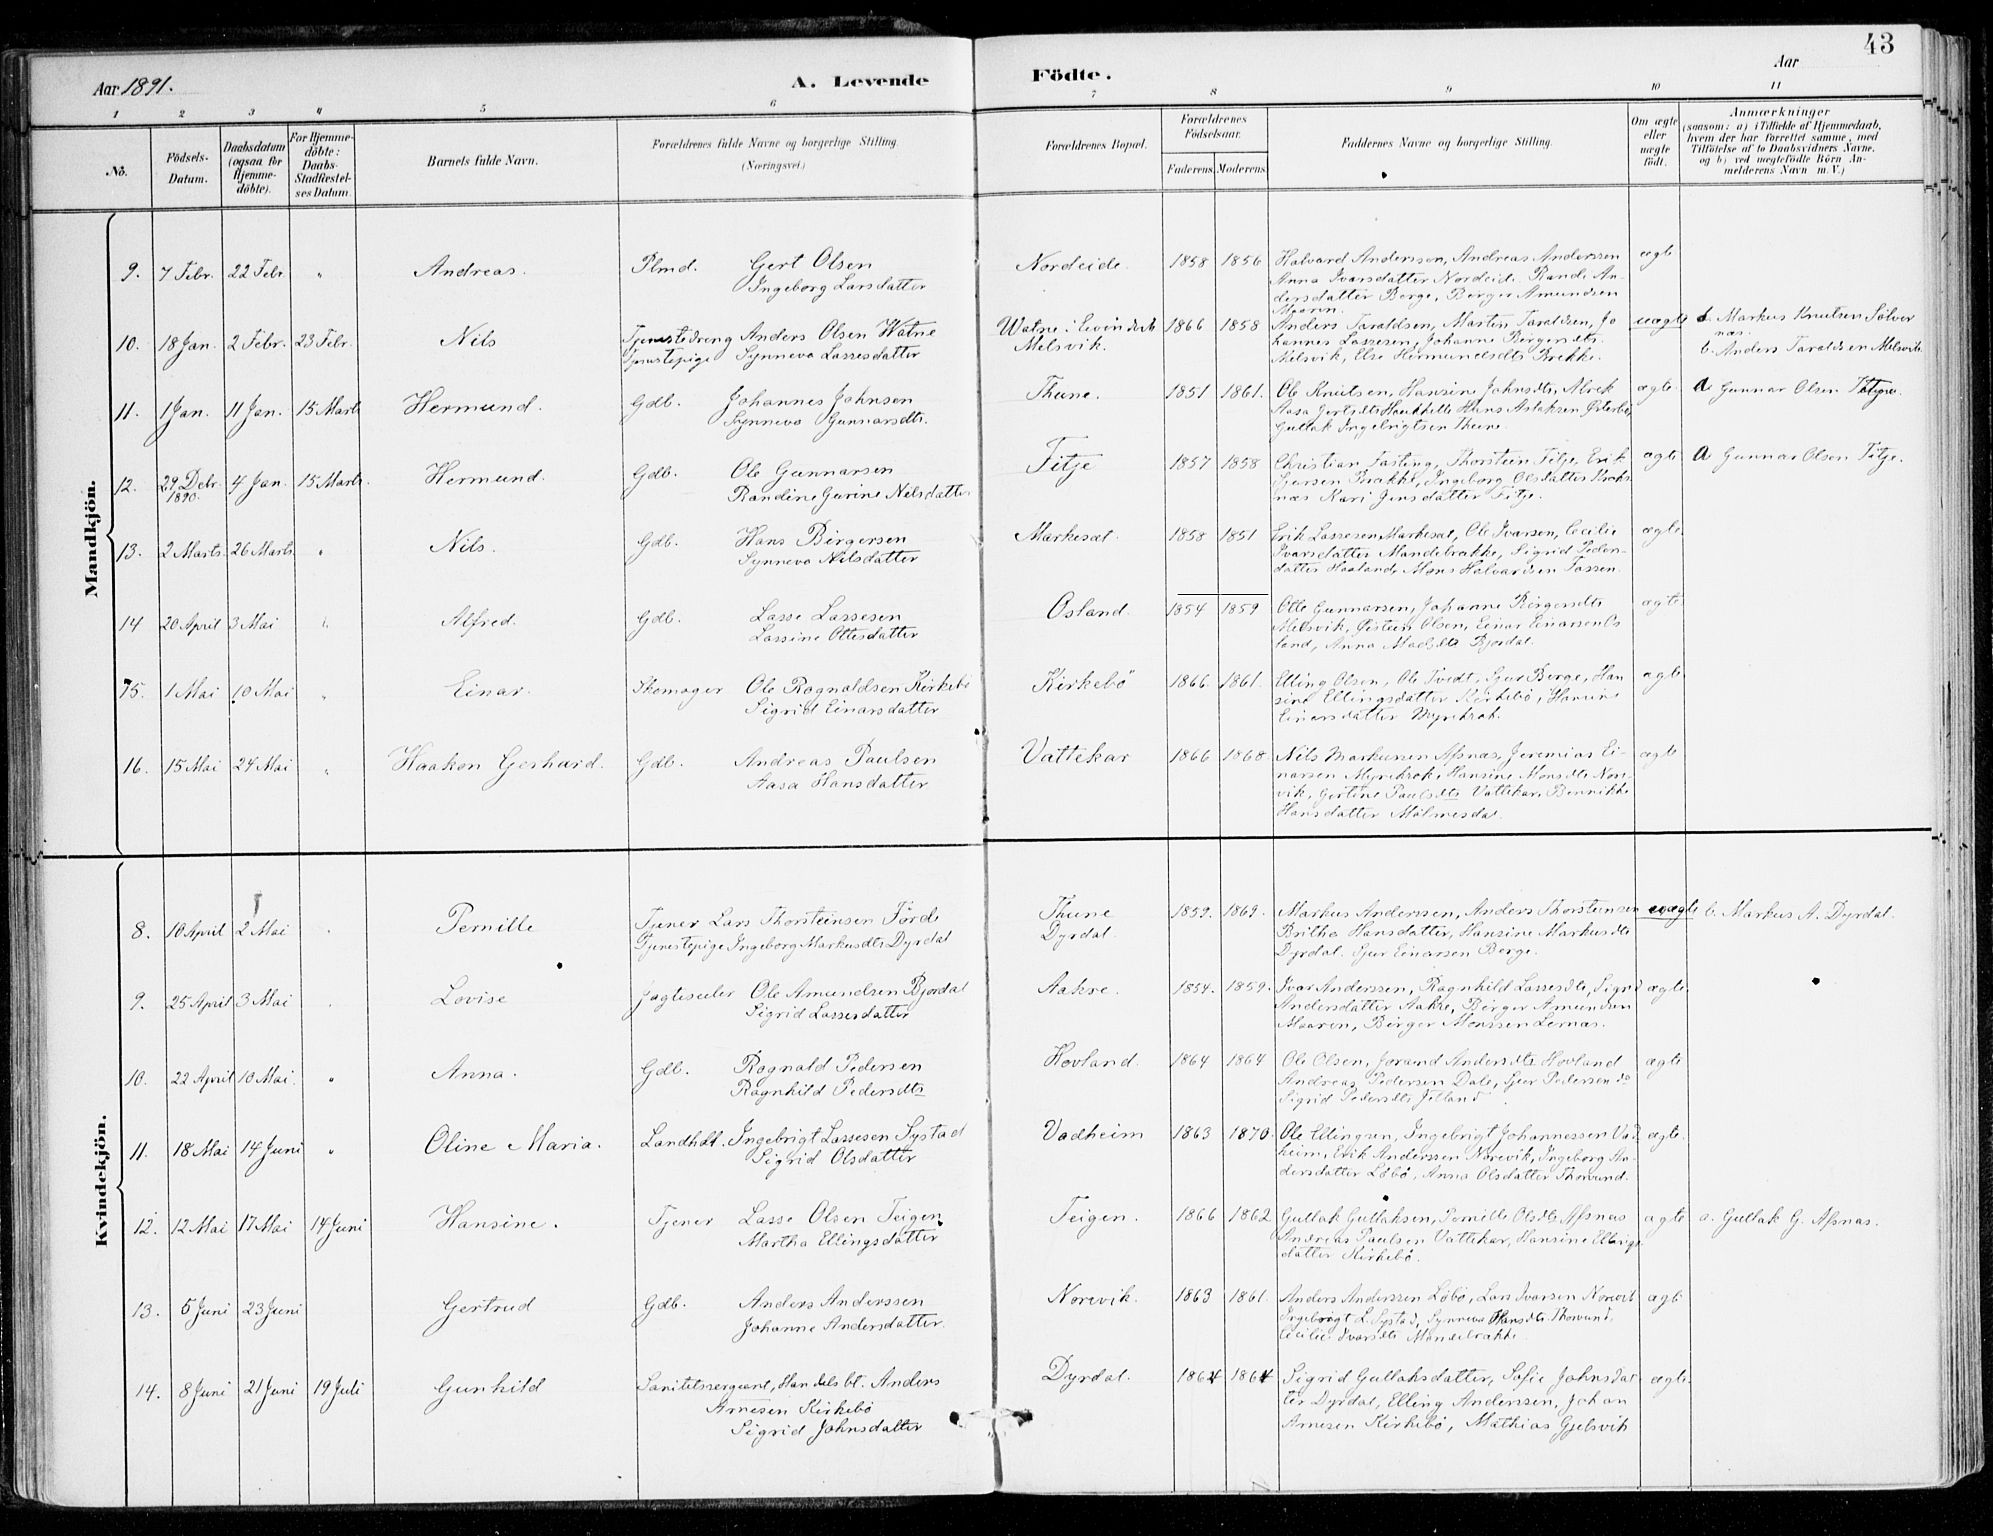 43
Aar 1891.
A. Levende
Födte.
Aar
1 2 3 4 5 6 7 8 9 10 11
No.
Födsels-
Datum.
Daabsdatum
(ogsaa for
Hjemme-
döbte).
For Hjemme-
döbte:
Daabs-
Stadfæstel-
ses Datum.
Barnets fulde Navn.
Forældrenes fulde Navne og borgerlige Stilling.
(Næringsvei.)
Forældrenes Bopæl.
Forældrenes
Födselsaar.
Faderens. Moderens.
Faddernes Navne og borgerlige Stilling.
Om ægte
eller
uægte
födt.
Anmærkninger
(saasom: a) i Tilfælde af Hjemmedaab,
hvem der har forrettet samme, med
Tilföielse af to Daabsvidners Navne,
og b) ved uægtefödte Börn An-
melderens Navn m. V.)
Mandkjön.
9. 7 Febr. 22 Febr. " Andreas. Plmd. Gert Olsen Nordeide. 1858 1856 Halvard Anderssen, Andreas Anderssen ægte
Ingeborg Larsdatter Anna Ivarsdatter Nordeid. Rande An-
dersdatter Berge, Berger Amundsen
Maaren.
10. 18 Jan. 2 Febr. 23 Febr. Nils Tjenestedreng Anders Olsen Watne Watne i Eivindvik 1866 1858 Anders Taraldsen, Martin Taraldsen, Jo uægte a. Markus Knutsen Sølver
Tjenestepige Synneva Lassesdatter Melsvik. hannes Lassesen, Johanne Børgersdtr. næs.
Melsvik, Else Hermundsdtr Brekke. b. Anders Taraldsen Melsvik.
11. 1 Jan. 11 Jan. 15 Marts Hermund. Gdb. Johannes Johnsen Thune. 1851 1861. Ole Knutsen, Hansine Johnsdtr, Alvek ægte. a Gunnar Olsen Fitje.
Synneva Gunnarsdtr. Aasa Gertsdtr Hans Aslaksen Østerbø,
Gullak Ingebrigtsen Thune.
12. 29 Debr. 1890. 4 Jan. 15 Marts. Hermund. Gdb. Ole Gunnarsen Fitje 1857 1858 Christian Fasting, Thorstein Fitje, Erik ægte a Gunnar Olsen Fitje.
Randine Gurine Nilsdatter Sjursen Brække, Ingeborg Olsdatter
næs Kari Jensdatter Fitje.
13. 2 Marts. 26 Marts. " Nils. Gdb. Hans Børgersen Markesæt. 1858 1851 Erik Lassesen Markesæt, Ole Ivarsen, Cecilie ægte.
Synneva Nilsdatter Ivarsdatter Mandebrække, Sigrid Peder-
datter Haaland, Mons Halvardsen Tassen.
14 20 April 3 Mai " Alfred. Gdb. Lasse Lassesen Osland. 1854 1859 Otte Gunnarsen, Johanne Børgersdtr ægte.
Lassine Ottesdatter Melsvik, Østein Olsen, Einar Einarsen Os
land, Anna Madsdtr Bjordal.
15. 1 Mai 10 Mai " Einar. Skomager Ole Ragnaldsen Kirkebø Kirkebö 1866. 1861. Elling Olsen, Ole Tvedt, Sjur Berge, Han ægte.
Sigrid Einarsdatter sine Ellingsdatter Kirkebø, Hansine
Einarsdatter Myrekrok.
16. 15 Mai 24 Mai " Haakon Gerhard. Gdb. Andreas Paulsen Vattekar 1866 1868. Nils Markusen Afsnæs, Jeremias Ei- ægte
Aasa Hansdatter narsen Myrekrok, Hansine Monsdtr Nore-
vik, Gertine Paulsdtr Vattekar, Bennikke
Hansdatter Mølmesdal.
Kvindekjön.
8. 10 April 2 Mai Pernille Tjener Lars Thorsteinsen Førde Thune 1859. 1869. Markus Anderssen, Anders Thorsteinsen uægte b. Markus A. Dyrdal.
Tjenestepige Ingeborg Markusdtr Dyrdal Dyrdal. Britha Hansdatter, Hansine Markusdtr
Dyrdal. Sjur Einarsen Berge.
9. 25 April 3 Mai Lovise Jagteseiler Ole Amundsen Bjordal Aakre. 1854. 1859. Ivar Anderssen, Ragnhild Lassesdtr, Sigrid ægte.
Sigrid Lassesdatter Andersdatter Aakre, Børger Amundsen
Maaren, Børger Monssen Lernæs.
10. 22 April 10 Mai. " Anna. Gdb. Ragnald Pedersen Hovland. 1864 1864 Ole Olsen, Jorand Andersdtr Hovland ægte
Ragnhild Pedersdtr Andreas Pedersen Dale, Sjur Pedersen do
Sigrid Pedersdtr
11. 18 Mai 14 Juni " Oline Maria. Landhdl. Ingebrigt Lassesen Systad Vadheim 1863 1870. Ole Ellingsen, Ingebrigt Johannessen Vad ægte.
Sigrid Olsdatter heim, Erik Anderssen Norevik, Ingeborg An-
dersdatter Løbø, Anna Olsdatter Thorvund.
12. 12 Mai 17 Mai 14 Juni Hansine. Tjener Lasse Olsen Teigen Teigen. 1866 1862 Gullak Gullaksen, Pernille Olsdtr Afsnæs ægte a. Gullak G. Afsnæs.
Martha Ellingsdatter Andreas Paulsen Vattekar, Hansine Ellings
datter Kirkebø.
13. 5 Juni 23 Juni Gertrud Gdb. Anders Anderssen Norevik. 1863 1861. Anders Anderssen Løbø, Lars Ivarsen Norevik ægte
Johanne Andersdatter. Ingebrigt L. Systad, Synneva Hansdtr Thorvund,
Cecilie Ivarsdtr Mandebrække.
14. 8 Juni 21 Juni 19 Juli Gunhild Sanitetssergeant, Handelsbt. Anders Dyrdal. 1864 1864 Sigrid Gullaksdatter, Sofie Johnsdat ægte.
Arnesen Kirkebø ter Dyrdal, Elling Anderssen, Johan
Sigrid Johnsdatter Arnesen Kirkebø, Mathias Gjelsvik